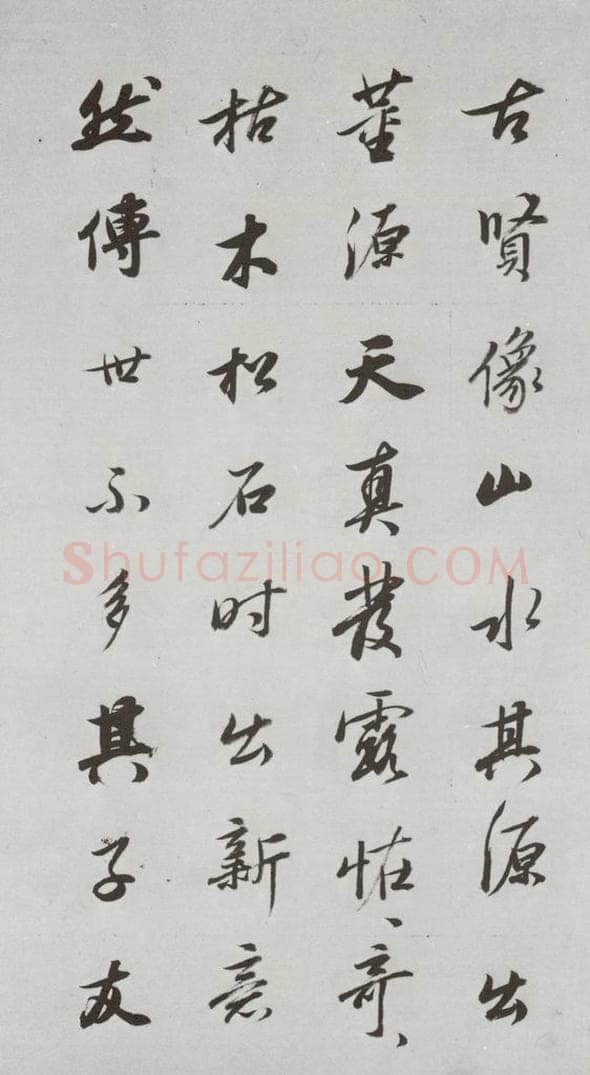 古賢像山水其源出
董源天真發露恠、奇、
枯木松石时出新意
然傳世不多其子友
Shufaziliao.COM